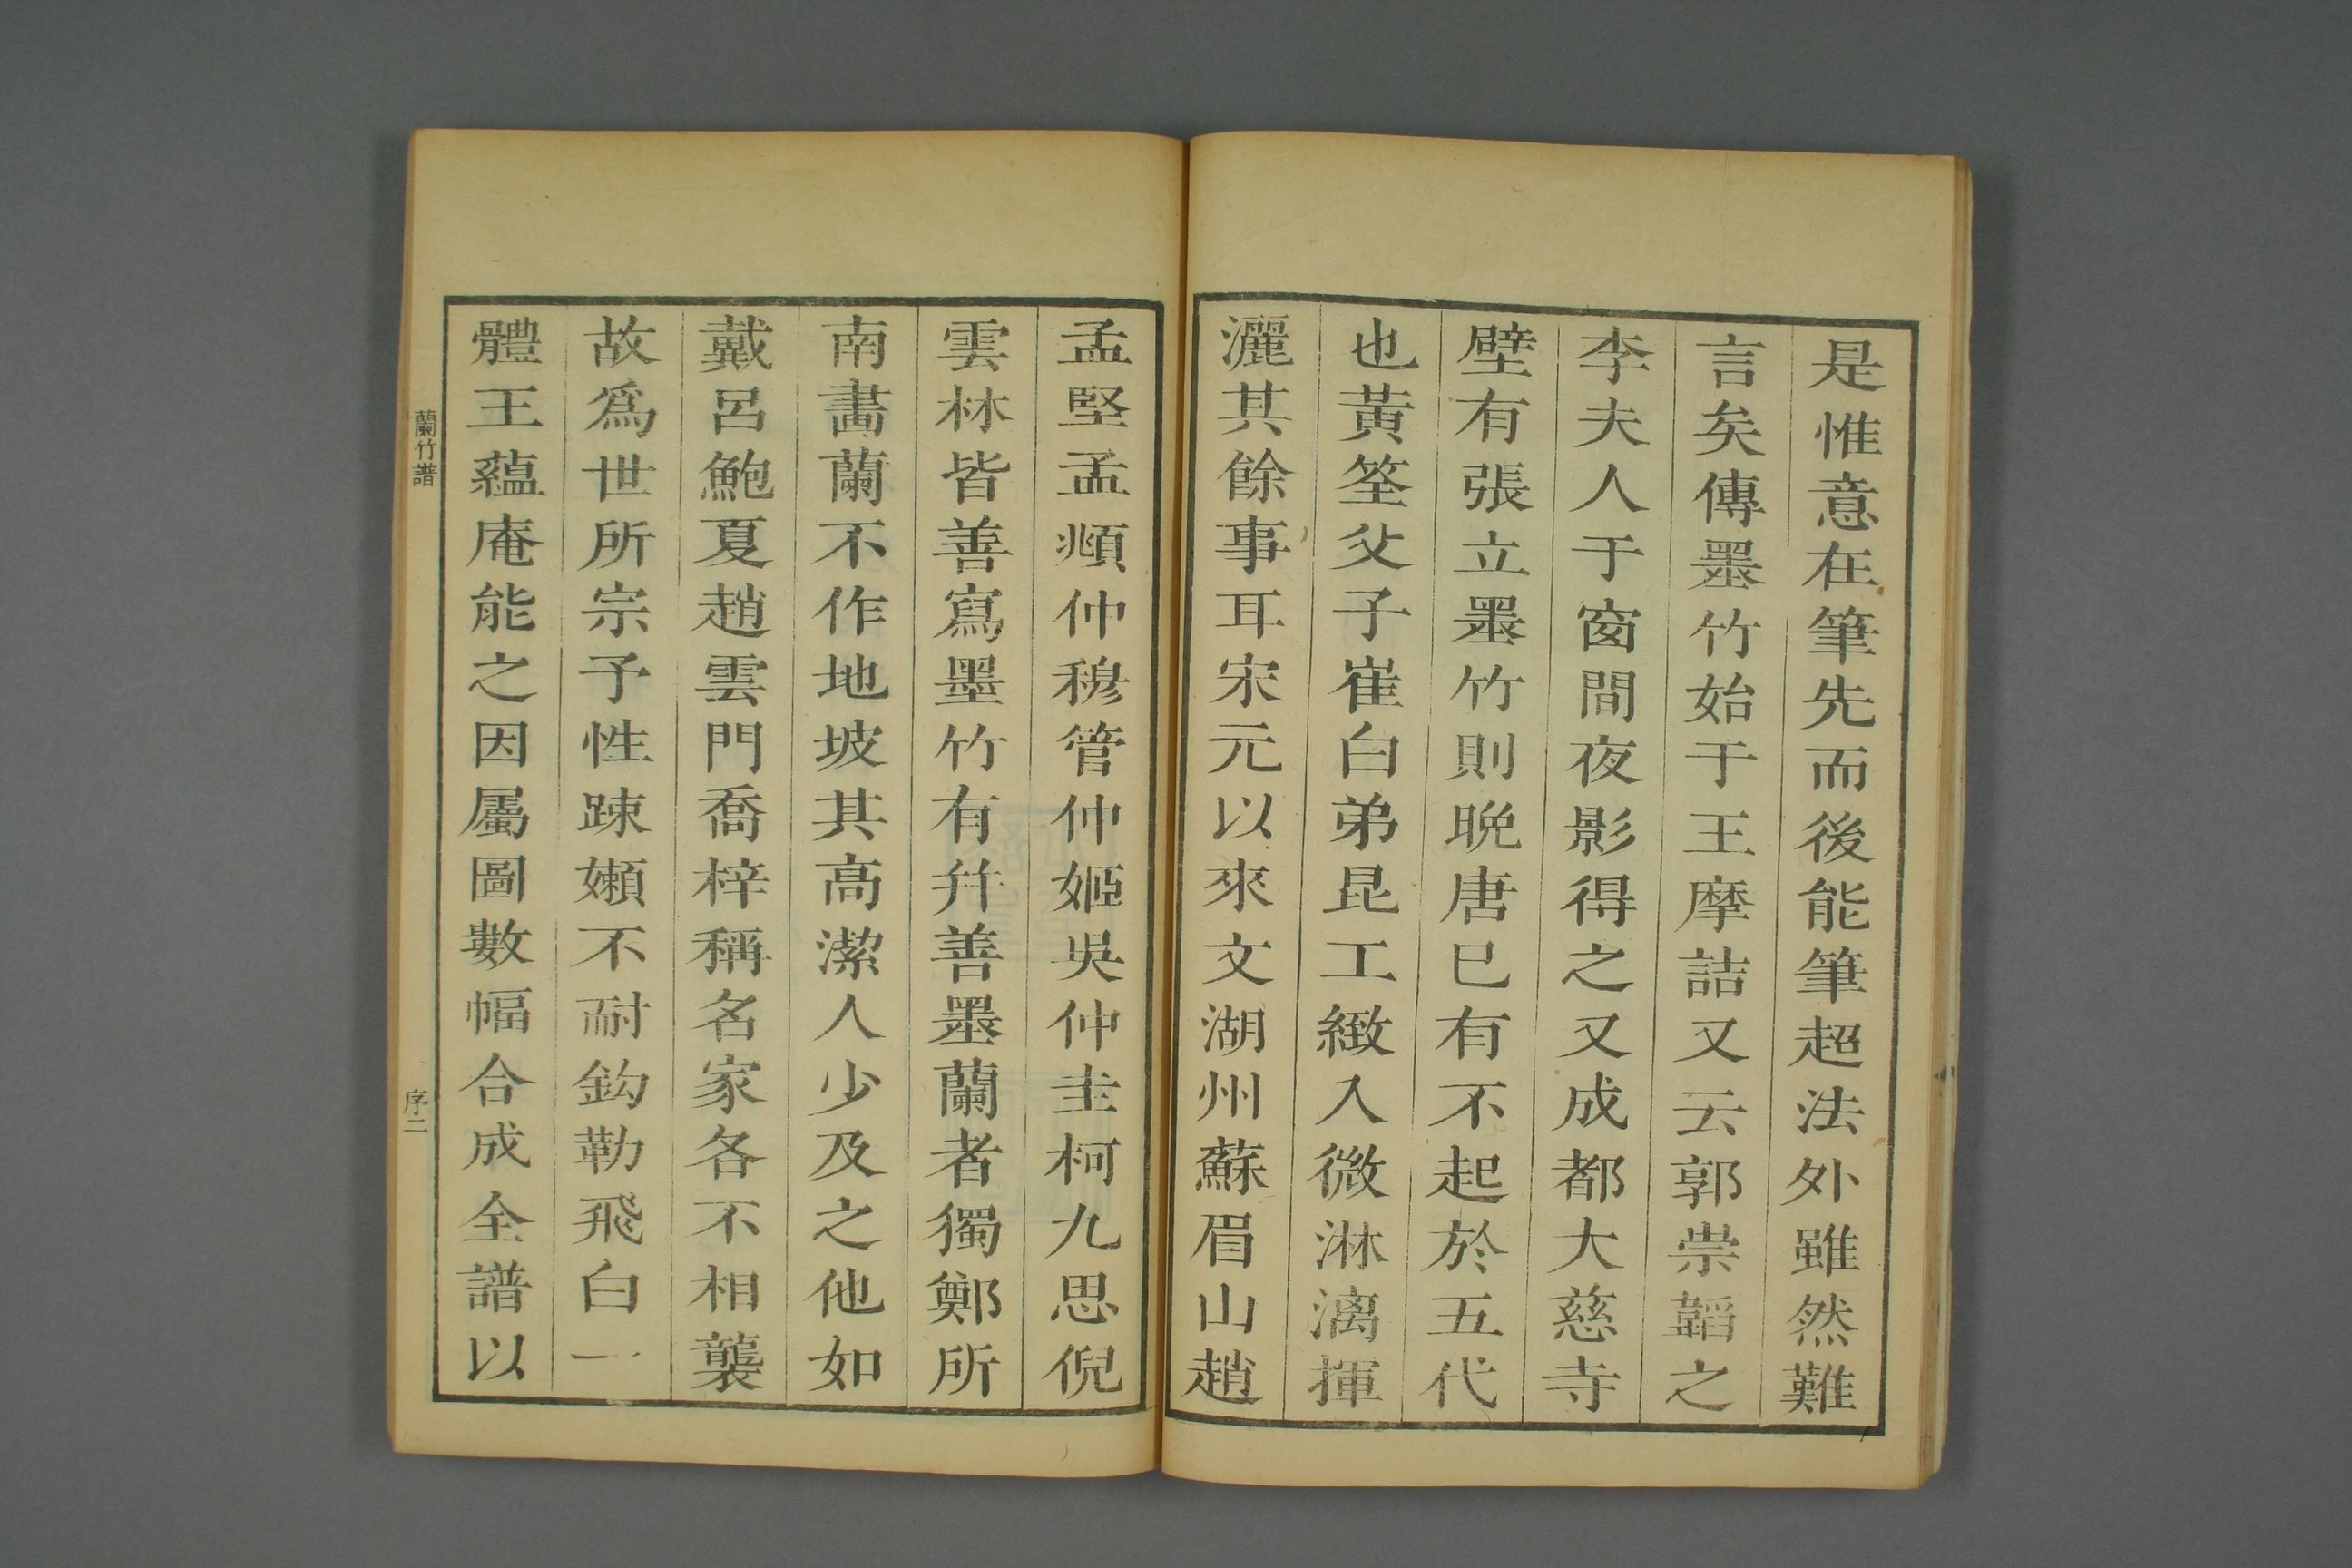 是惟意在筆先而後能筆超法外雖然難
言矣傳墨竹始于王摩詰又云郭崇韜之
李夫人于窗間夜影得之又成都大慈寺
壁有張立墨竹則晩唐已有不起於五代
也黃筌父子崔白弟昆工緻入微淋漓揮
灑其餘事耳宋元以來文湖州蘇眉山趙
孟堅孟頫仲穆管仲姬吳仲圭柯九思倪
雲林皆善寫墨竹有幷善墨蘭者獨鄭所
南畵蘭不作地坡其高潔人少及之他如
戴呂鮑夏趙雲門喬梓稱名家各不相襲
故爲世所宗予性踈嬾不耐鈎勒飛白一
體王蘊庵能之因屬圖數幅合成全譜以
蘭竹譜
序二